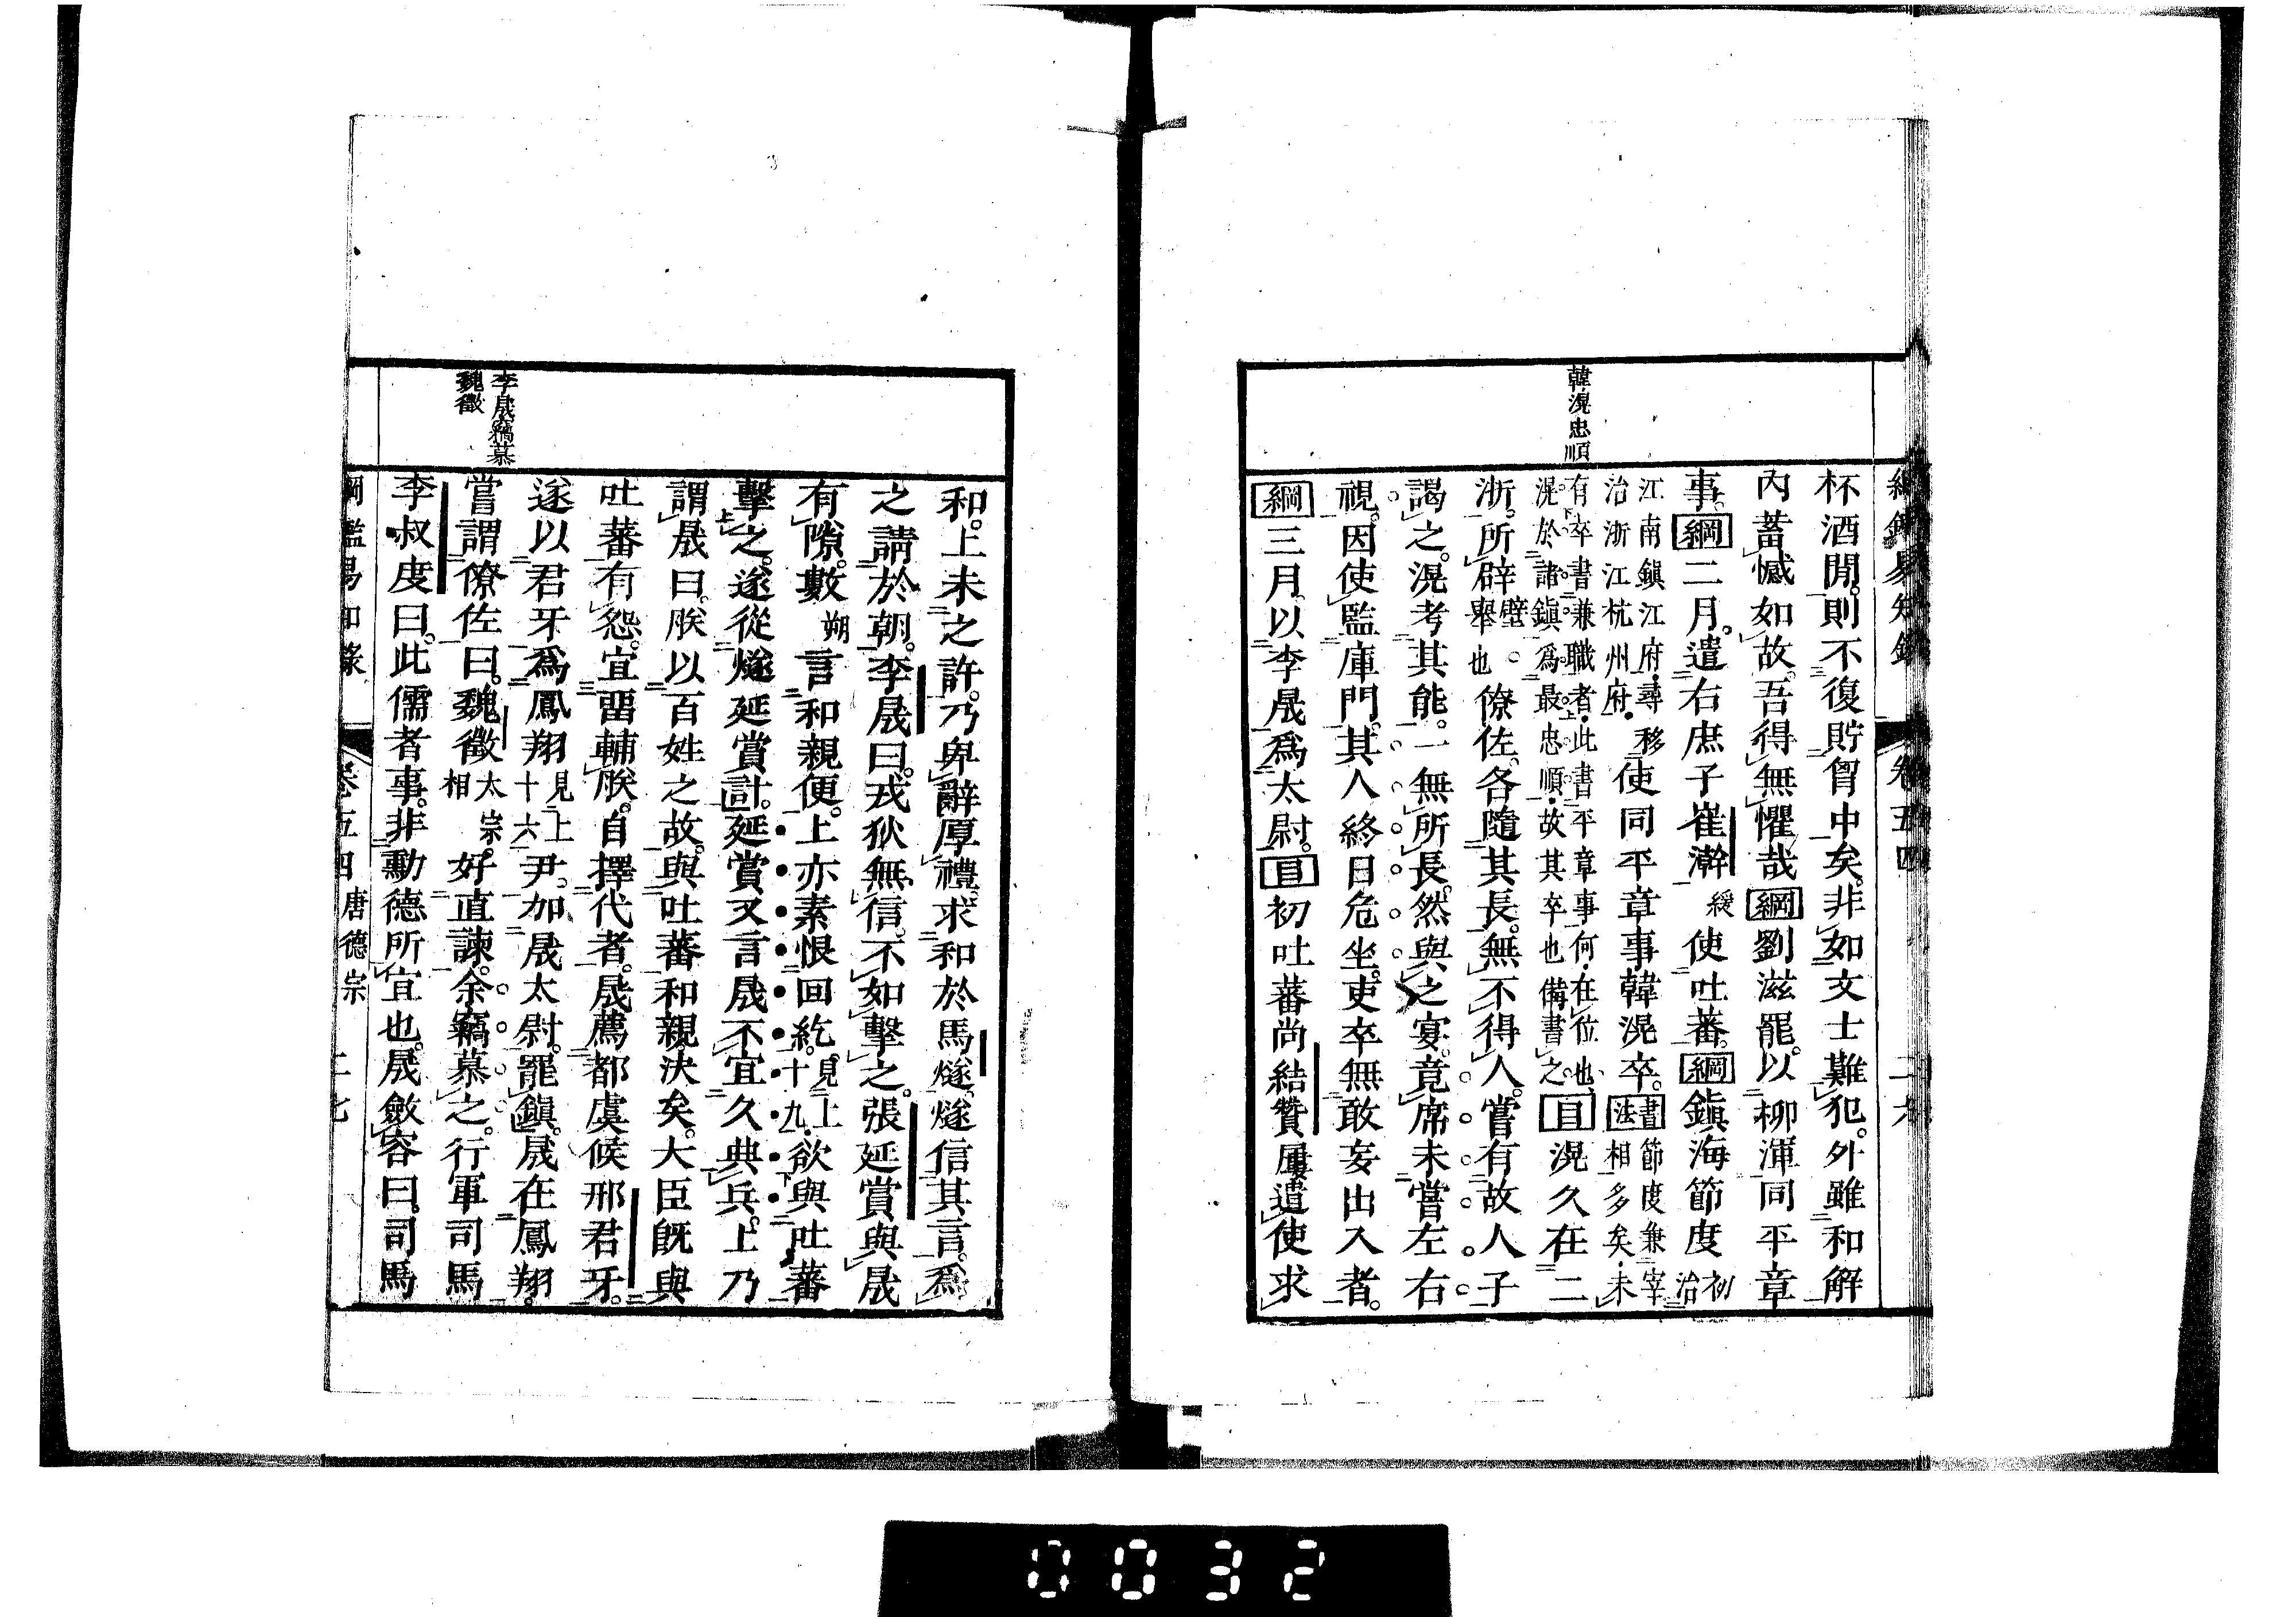 韓滉忠順
杯酒閒。則不復貯胷中矣。非如文士難犯。外雖和解
內蓄憾如故。吾得無懼哉綱劉滋罷。以柳渾同平章
事。綱二月。遣右庶子崔澣緩使吐蕃。綱鎭海節度初治
江南鎭江府。尋移治浙江杭州府。使同平章事韓滉卒。書法節度兼宰相多矣。未
有卒書兼職者。此書平章事何。在位也。滉於諸鎭爲最忠順。故其卒也備書之。目滉久在二
浙。所辟璧。舉也僚佐。各隨其長。無不得人。嘗有故人子
謁之。滉考其能。一無所長。然與之宴。竟席未嘗左右
視。因使監庫門。其人終日危坐。吏卒無敢妄出入者。
綱三月。以李晟爲太尉。目初吐蕃尚結贊屢遣使求
卷五四
李晟竊慕
魏徵
和。上未之許。乃卑辭厚禮。求和於馬燧。燧信其言。爲
之請於朝。李晟曰。戎狄無信。不如擊之。張延賞與晟
有隙。數朔言和親便。上亦素恨回紇。見上十九。欲與吐蕃
擊之。遂從燧延賞計。延賞又言晟不宜久典兵。上乃
謂晟曰。朕以百姓之故。與吐蕃和親決矣。大臣旣與
吐蕃有怨。宜畱輔朕。自擇代者。晟薦都虞候邢君牙。
遂以君牙爲鳳翔見上十六尹。加晟太尉。罷鎭。晟在鳳翔。
嘗謂僚佐曰。魏徵太宗相好直諫。余竊慕之。行軍司馬
李叔度曰。此儒者事。非勳德所宜也。晟斂容曰。司馬
綱鑑易知錄 卷五四 唐德宗
0032